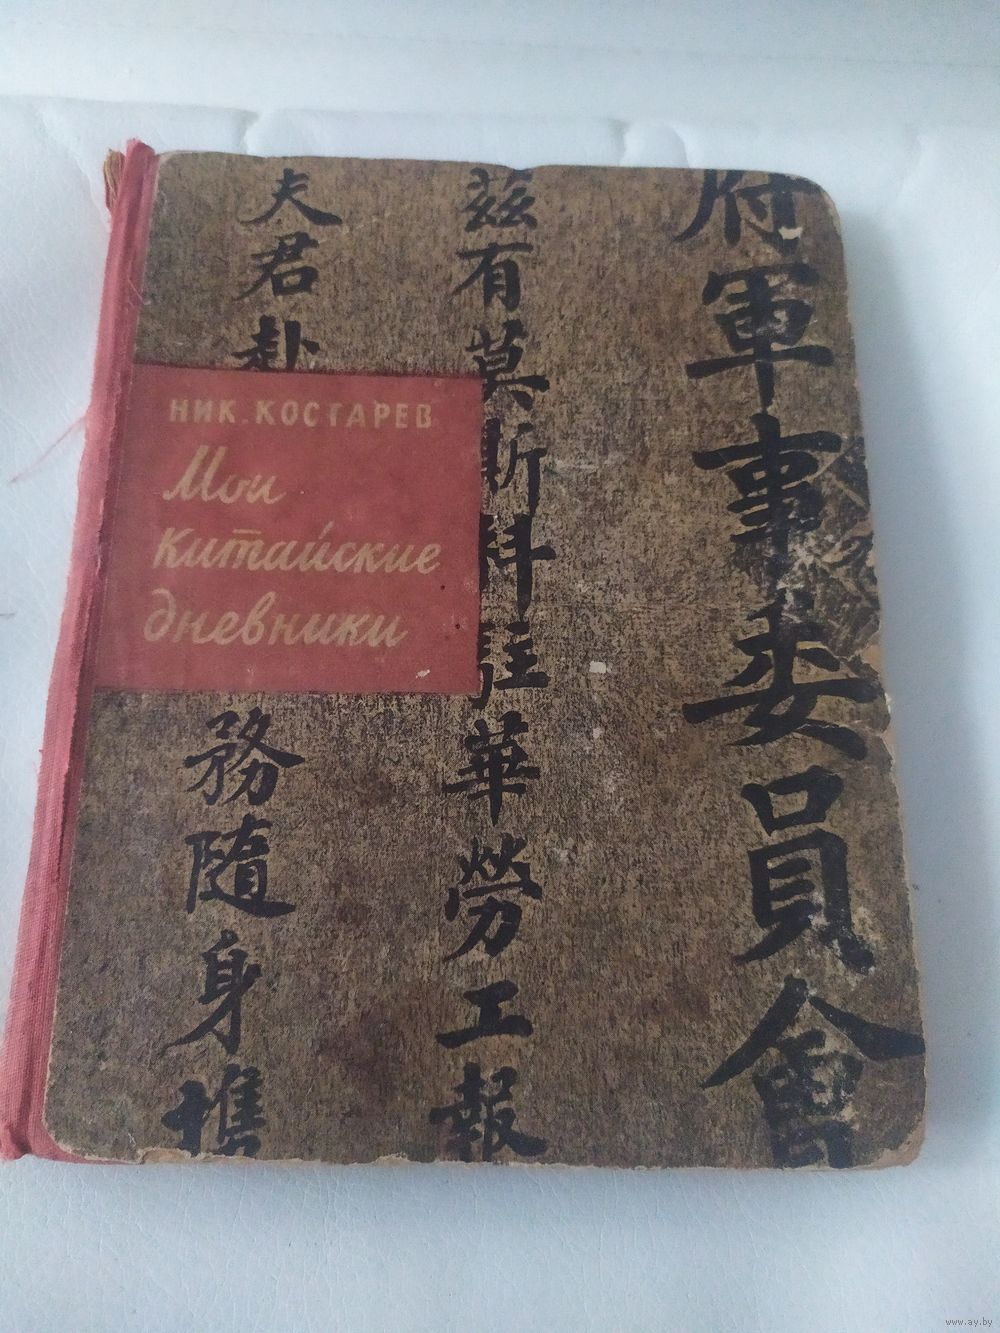 府軍事委員會
茲有莫斯科駐華勞工報
夫君赴
務隨身携
НИК. КОСТАРЕВ
Мои
китайские
дневники
www.ay.by